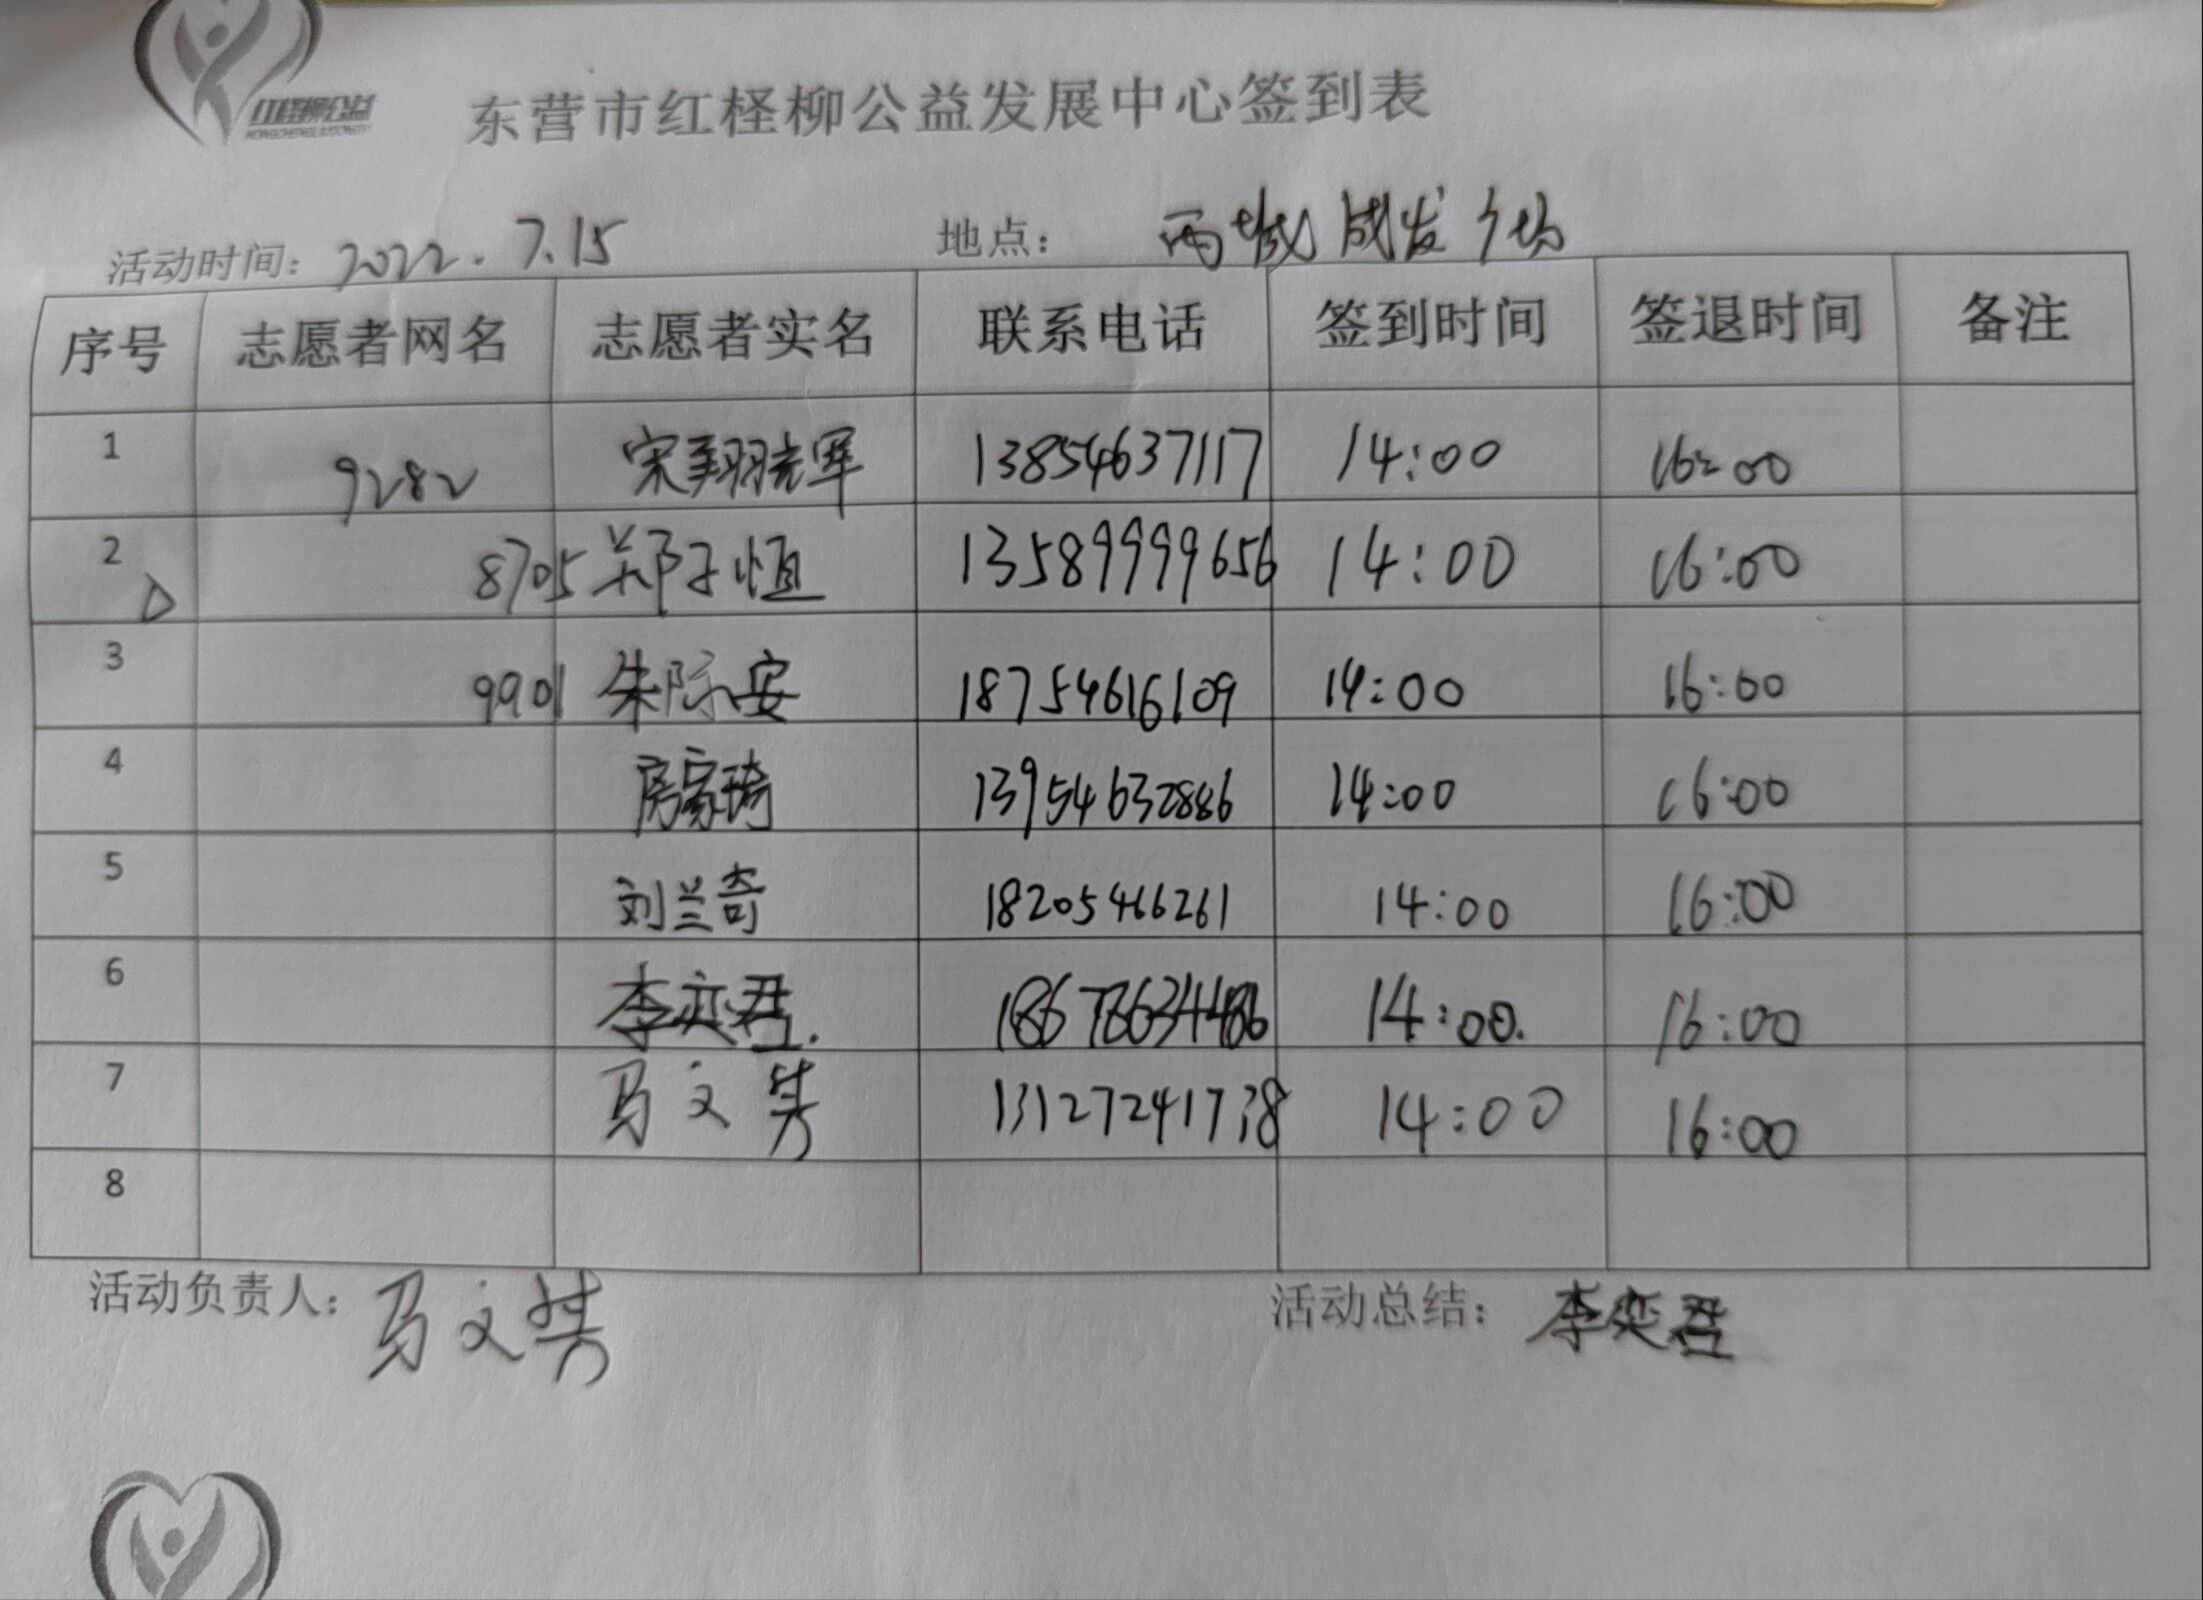 红柽柳公益
东营市红柽柳公益发展中心签到表
活动时间：2022.7.15 地点：西城成发广场
序号 志愿者网名 志愿者实名 联系电话 签到时间 签退时间 备注
1 9282 宋翔 13854637117 14:00 16:00
2 8705 郑子恒 13589999656 14:00 16:00
3 9901 朱际安 18754616109 14:00 16:00
4 房家琦 13954632886 14:00 16:00
5 刘兰奇 18205466261 14:00 16:00
6 李奕君. 14:00. 16:00
7 马文 14:00 16:00
8
活动负责人：马文 活动总结：李奕君